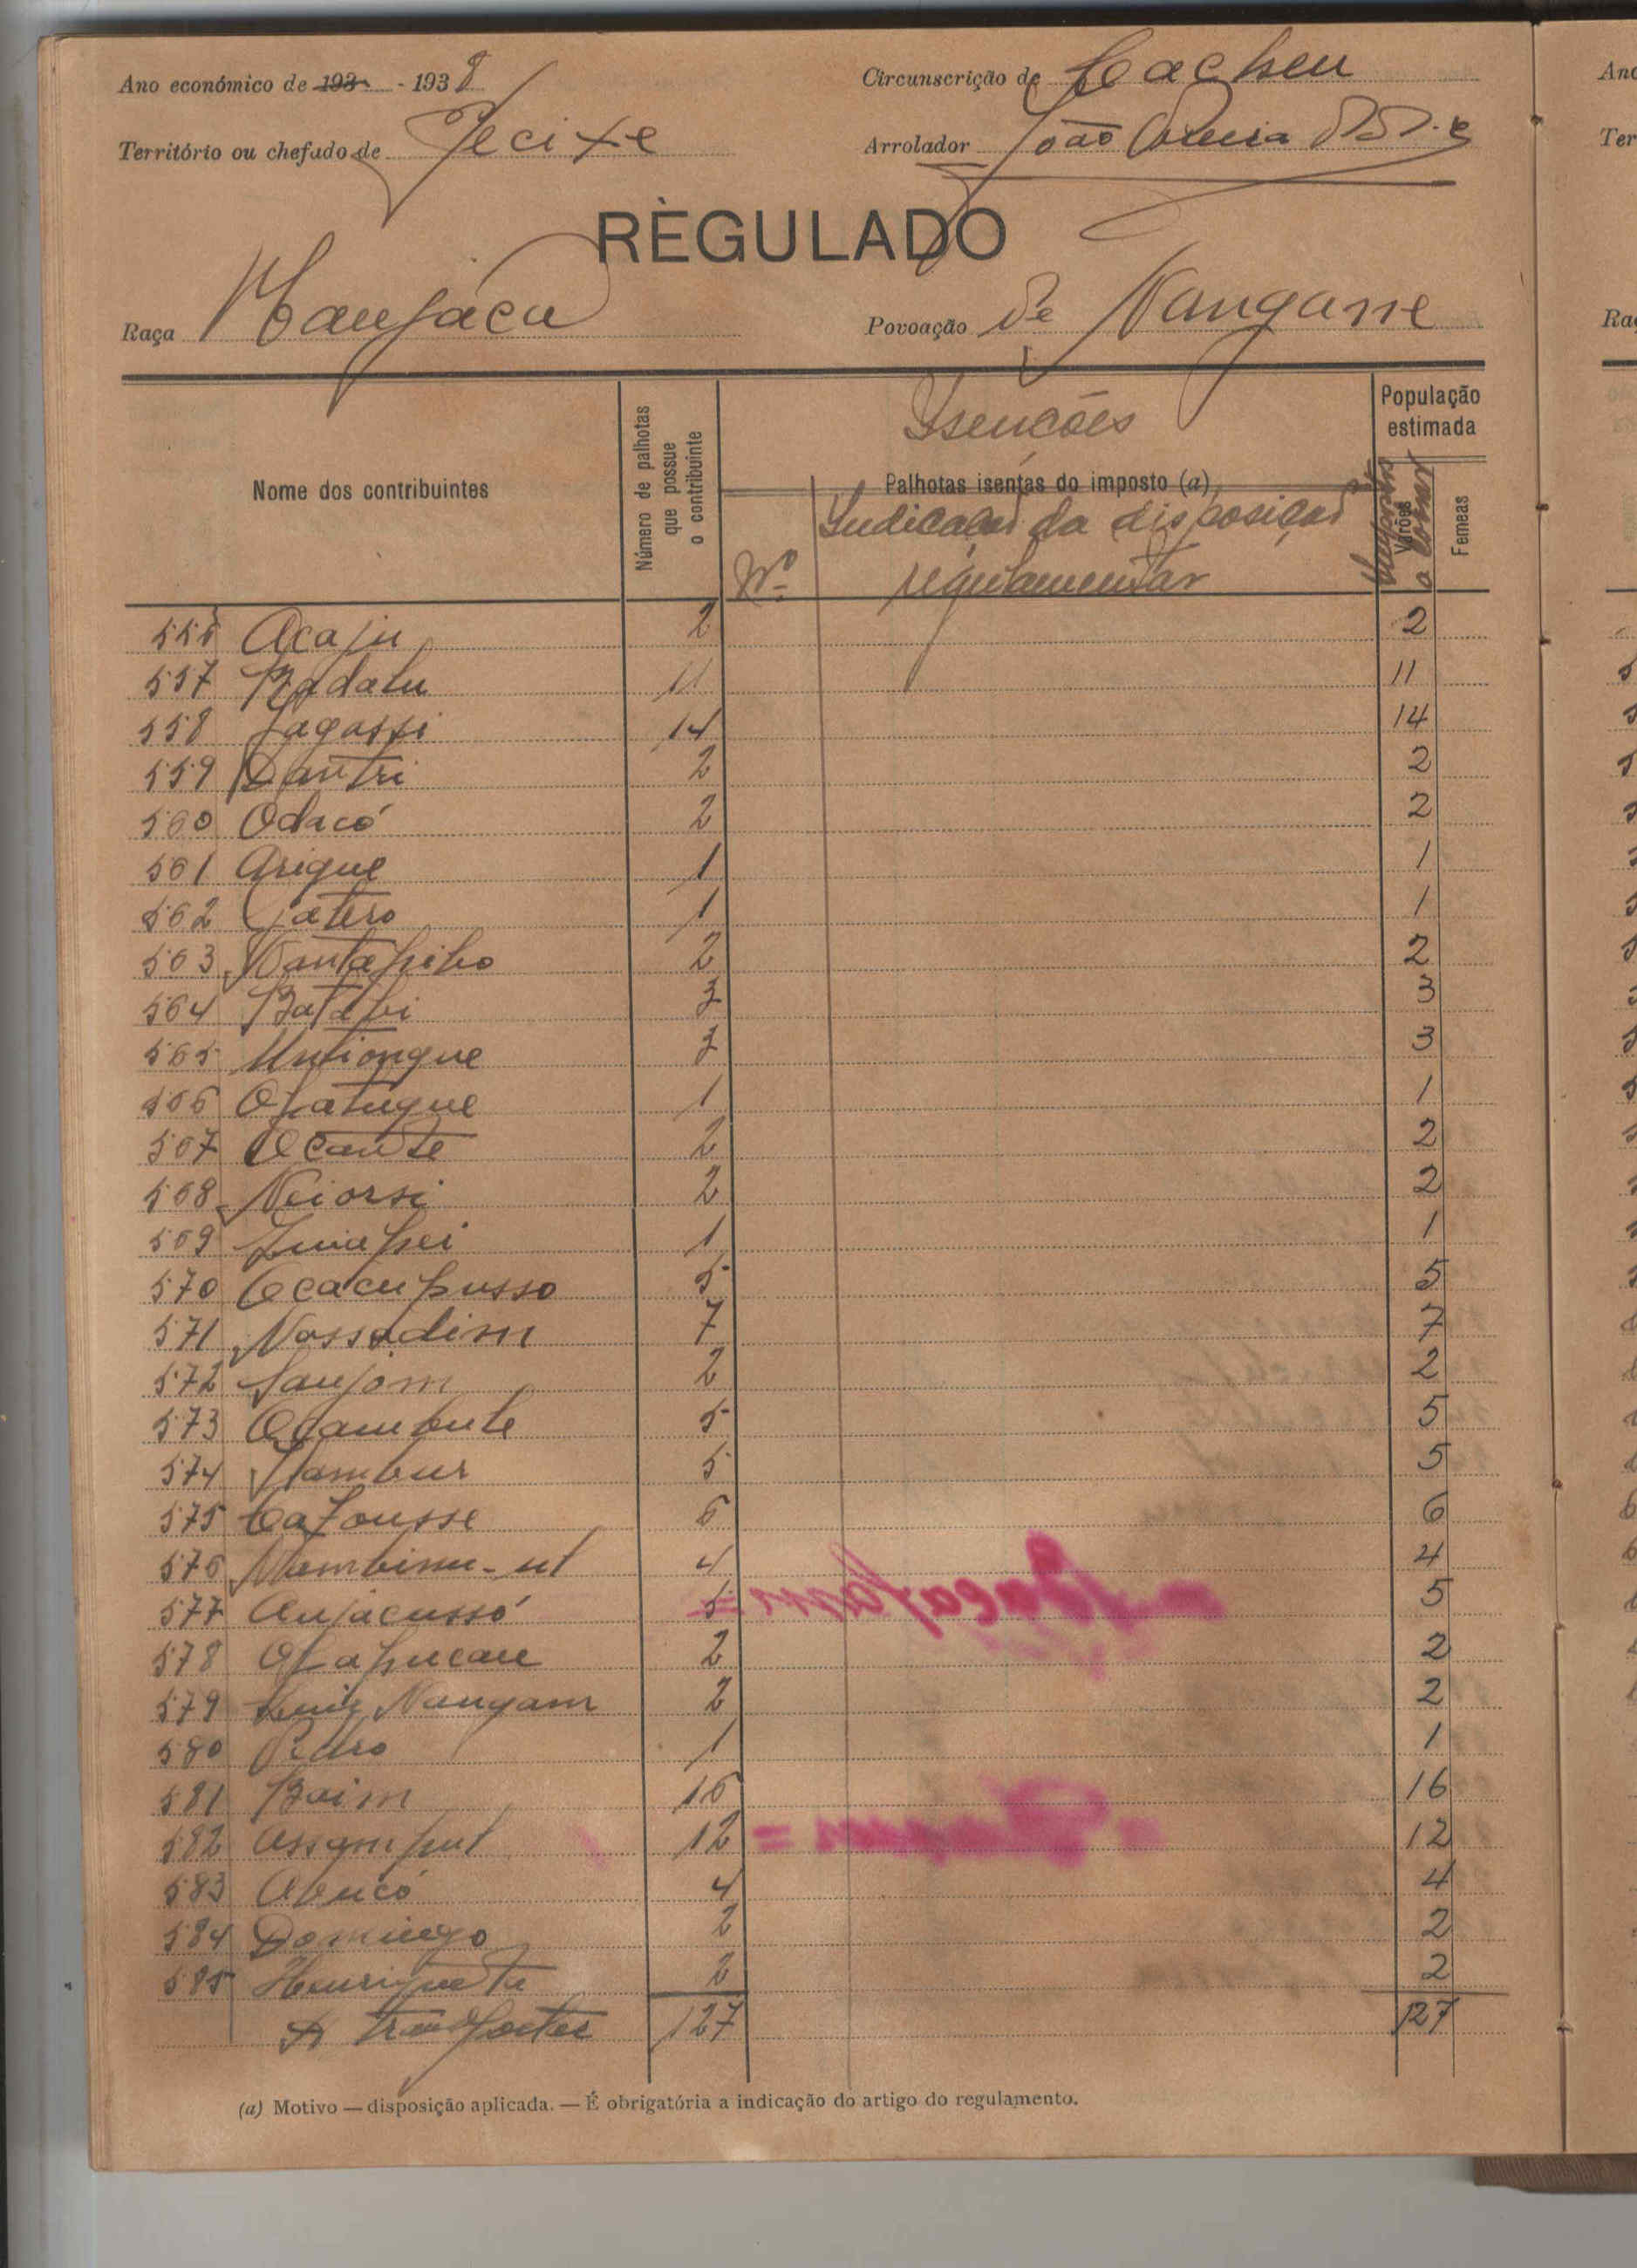 Ano económico de 193 - 1938
Circunscrição de Cacheu
Território ou chefado de Jecixe
Arrolador João Correia
RÈGULADO
Raça Manjaca
Povoação de Nangane
Nome dos contribuintes
Número de palhotas que possue o contribuinte
Isenções
Palhotas isentas do imposto (a)
Nº
Indicação da disposição
regulamentar
População
estimada
Varões
Femeas
556 Acaju 2 2
557 Badalu 11 11
558 Jagassi 14 14
559 Dantri 2 2
560 Odacó 2 2
561 Arique 1 1
562 Catero 1 1
563 Nantapibo 2 2
564 Batabi 3 3
565 Untiongue 3 3
566 Opatugue 1 1
567 Ocante 2 2
568 Neiorsi 2 2
569 1 1
570 Ocacupusso 5 5
571 Nossadim 7 7
572 Sanjom 2 2
573 Ocambute 5 5
574 Jambur 5 5
575 Cafousse 6 6
576 Mambinu-ut 4 4
577 Anjacussó 5 5
578 Olapucau 2 2
579 Luiz Nangam 2 2
580 Pedro 1 1
581 Baim 16 16
582 Assamput 12 12
583 Abucó 4 4
584 Domingo 2 2
585 Henriqueta 2 2
A transportar 127 127
(a) Motivo — disposição aplicada. — É obrigatória a indicação do artigo do regulamento.